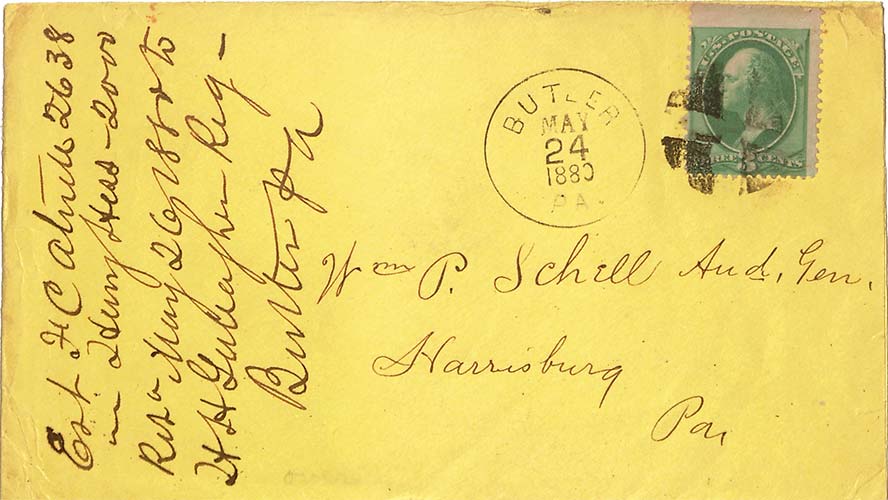 BUTLER
MAY
24
1880
PA.
U.S. POSTAGE
THREE 3 CENTS
Wm P. Schell Aud. Gen.
Harrisburg
Pa
Est. H C 2638
in Henry 2000
May 26 1880 to
H H Gallagher Reg -
Butler Pa